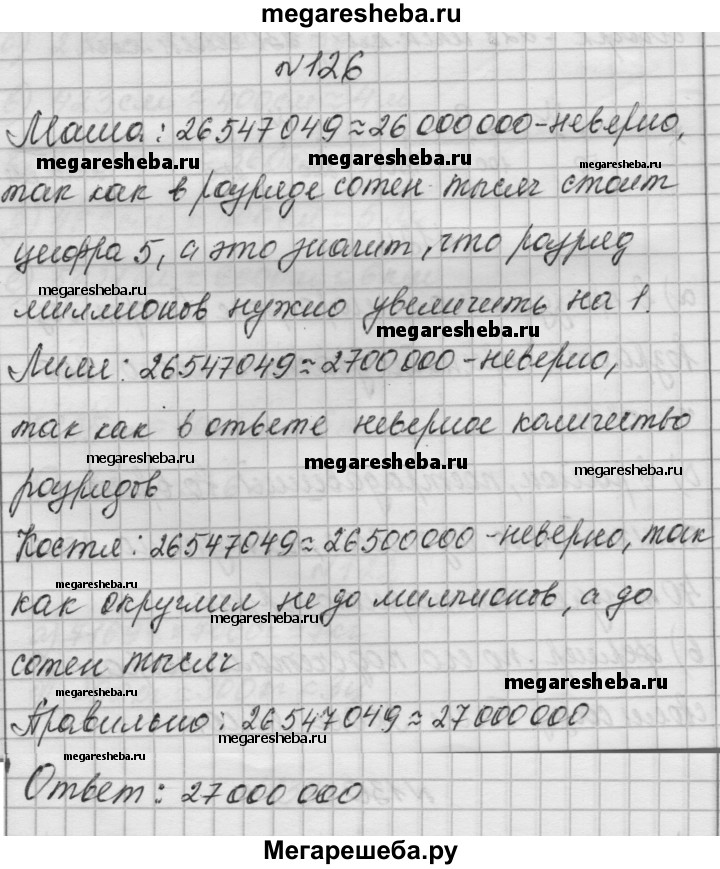 megaresheba.ru
№126
Маша: 26547049≈26000000-неверно,
megaresheba.ru megaresheba.ru megaresheba.ru
так как в разряде сотен тысяч стоит
цифра 5, а это значит, что разряд
megaresheba.ru
миллионов нужно увеличить на 1.
megaresheba.ru
Лиля: 26547049≈2700000-неверно,
так как в ответе неверное количество
megaresheba.ru megaresheba.ru megaresheba.ru
разрядов
Костя: 26547049≈26500000-неверно, так
megaresheba.ru megaresheba.ru
как округлил не до миллионов, а до
megaresheba.ru
сотен тысяч
megaresheba.ru megaresheba.ru
Правильно: 26547049≈27000000
megaresheba.ru
megaresheba.ru
Ответ: 27000000
Мегарешеба.ру